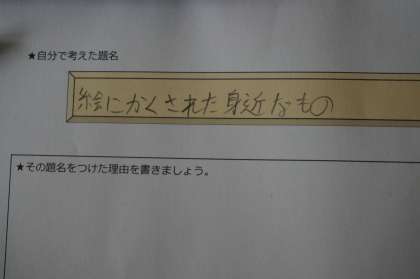 ★自分で考えた題名
絵にかくされた身近なもの
★その題名をつけた理由を書きましょう。